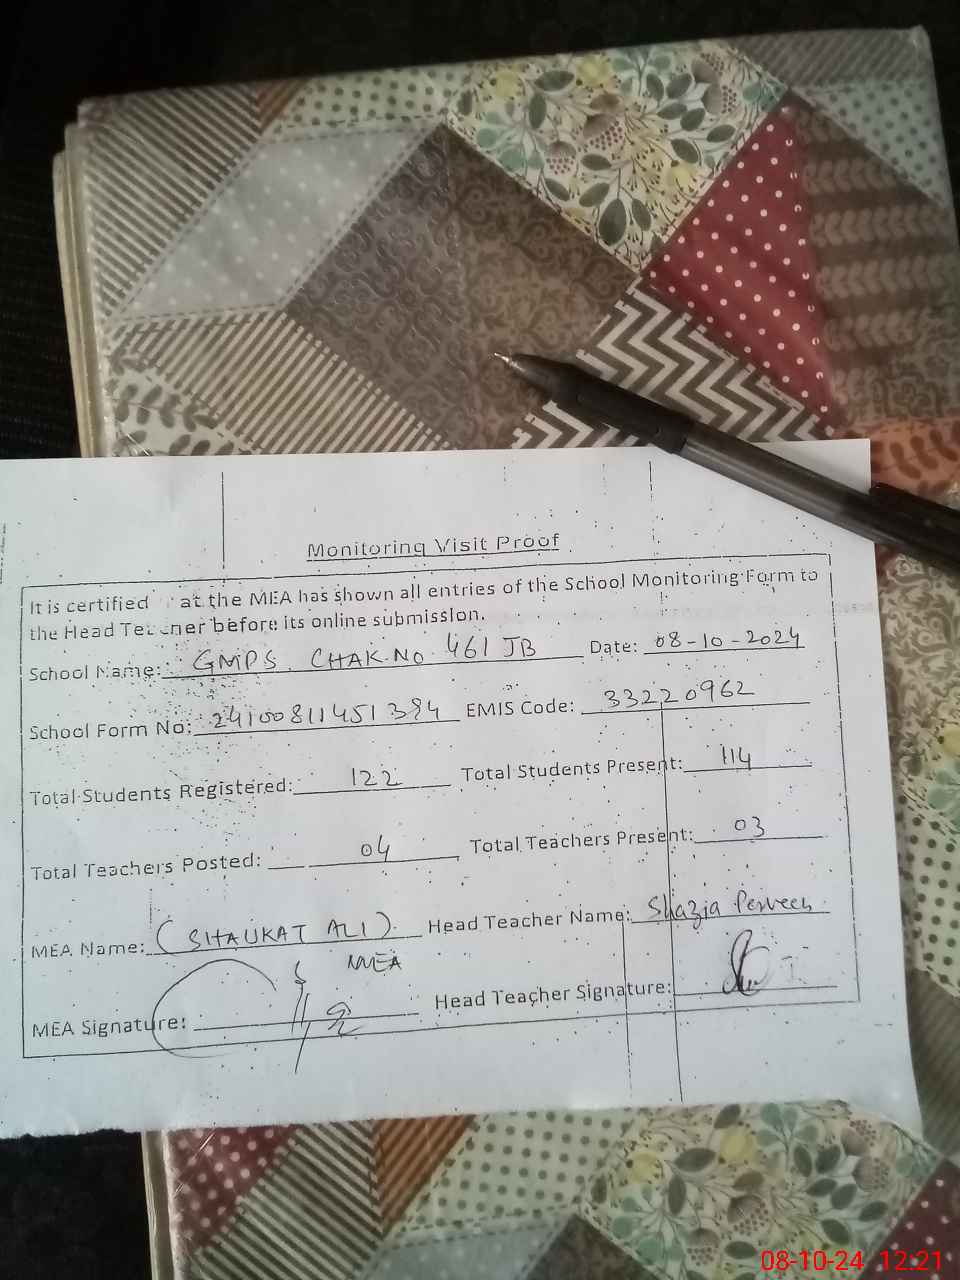 Monitoring Visit Proof
It is certified at the MEA has shown all entries of the School Monitoring Form to
the Head Teacner before its online submission.
School Name: GMPS CHAK.No 461 JB Date: 08-10-2024
School Form No: 24100811451394 EMIS Code: 33220962
Total Students Registered: 122 Total Students Present: 114
Total Teachers Posted: 04 Total Teachers Present: 03
MEA Name: (SHAUKAT ALI) Head Teacher Name: Shazia Perveen
MEA
MEA Signature: Head Teacher Signature:
08-10-24 12:21